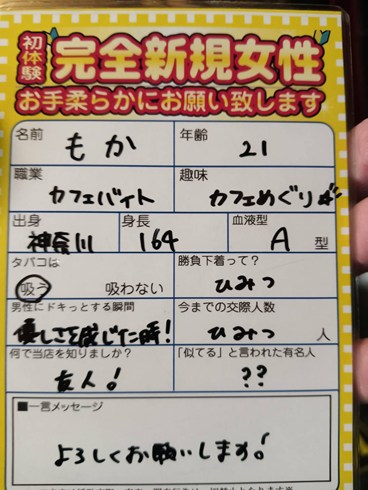 初体験
完全新規女性
お手柔らかにお願い致します
名前 もか 年齢 21
職業 カフェバイト 趣味 カフェめぐり
出身 神奈川 身長 164 血液型 A 型
タバコは 吸う 吸わない 勝負下着って? ひみつ
男性にドキっとする瞬間 優しさを感じた時! 今までの交際人数 ひみつ 人
何で当店を知りましたか? 友人! 「似てる」と言われた有名人 ??
■一言メッセージ
よろしくお願いします!